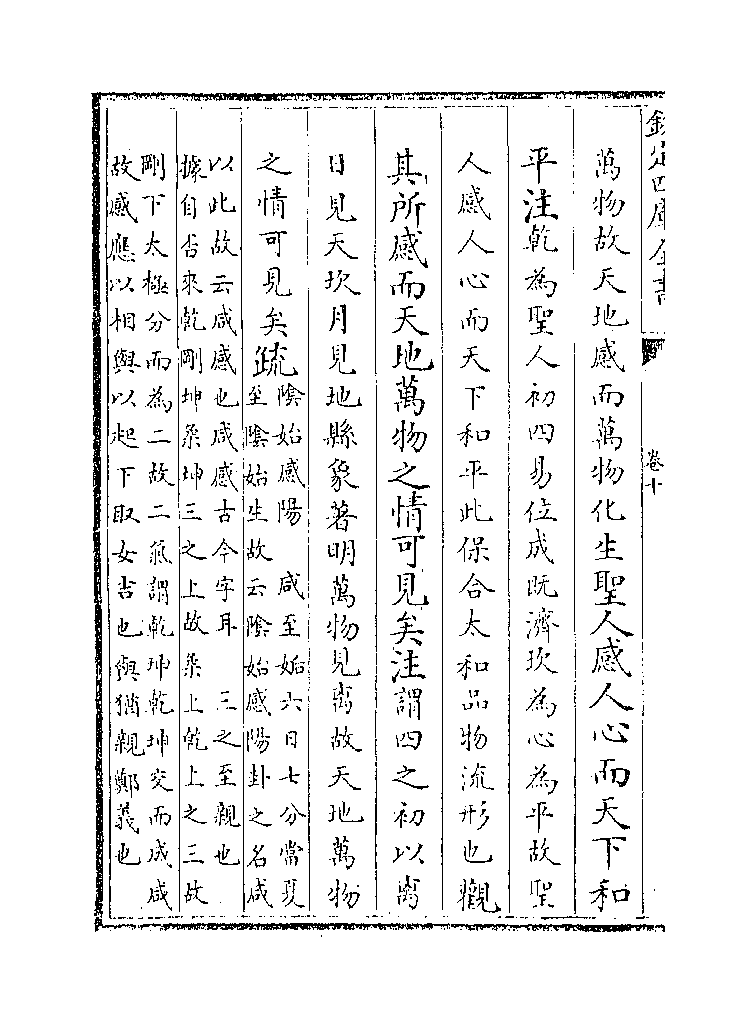 欽定四庫全書
卷十
萬物故天地感而萬物化生聖人感人心而天下和
平注乾為聖人初四易位成既濟坎為心為平故聖
人感人心而天下和平此保合太和品物流形也觀
其所感而天地萬物之情可見矣注謂四之初以离
日見天坎月見地縣象著明萬物見离故天地萬物
之情可見矣疏
陰始感陽　咸至姤六日七分當夏
至陰始生故云陰始感陽卦之名咸
以此故云咸感也咸感古今字耳　三之至親也
據自否來乾剛坤柔坤三之上故柔上乾上之三故
剛下太極分而為二故二氣謂乾坤乾坤交而成咸
故感應以相與以起下取女吉也與猶親鄭義也